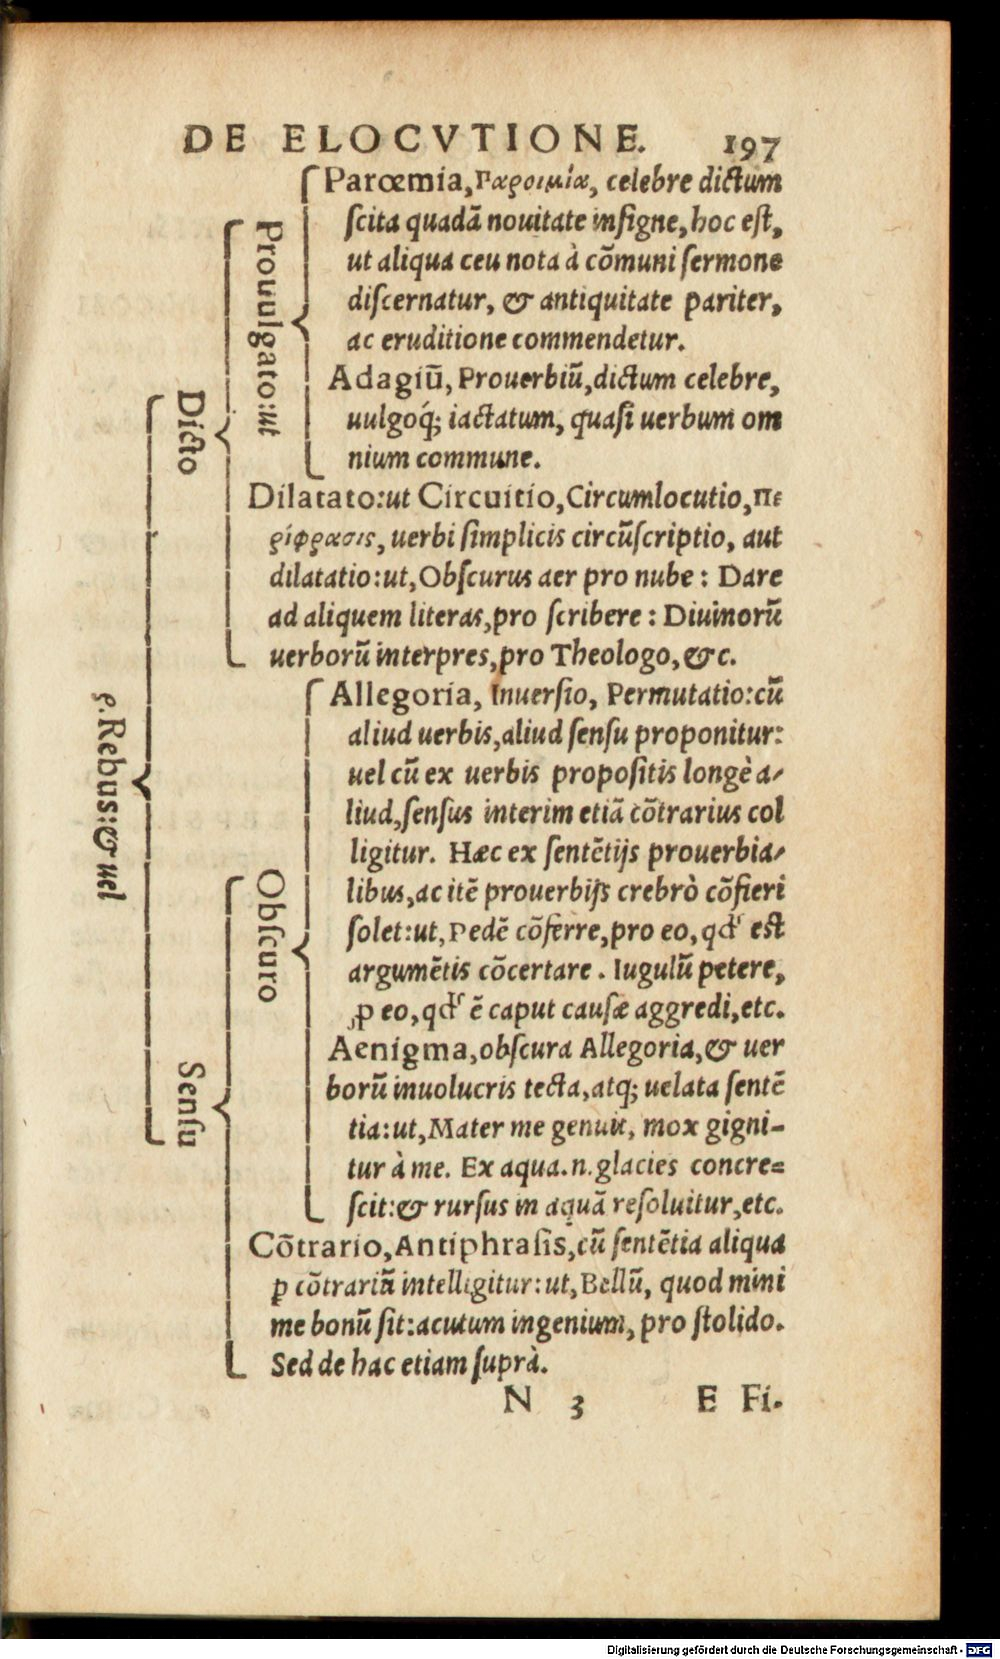 DE ELOCVTIONE. 197
ϛ. Rebus: & uel
Dicto
Prouulgato: ut
Parœmia, Παροιμία, celebre dictum
ſcita quadā nouitate inſigne, hoc eſt,
ut aliqua ceu nota à cōmuni ſermone
diſcernatur, & antiquitate pariter,
ac eruditione commendetur.
Adagiū, Prouerbiū, dictum celebre,
uulgoq́; iactatum, quaſi uerbum om
nium commune.
Dilatato: ut Circuitio, Circumlocutio, Πε
ρίφρασις, uerbi ſimplicis circūſcriptio, aut
dilatatio: ut, Obſcurus aer pro nube: Dare
ad aliquem literas, pro ſcribere: Diuinorū
uerborū interpres, pro Theologo, &c.
Senſu
Obſcuro
Allegoria, Inuerſio, Permutatio: cū
aliud uerbis, aliud ſenſu proponitur:
uel cū ex uerbis propoſitis longè a-
liud, ſenſus interim etiā cōtrarius col
ligitur. Hæc ex ſentētijs prouerbia-
libus, ac itē prouerbijs crebrò cōfieri
ſolet: ut, Pedē cōferre, pro eo, qđ eſt
argumētis cōcertare. Iugulū petere,
ꝓ eo, qđ ē caput cauſæ aggredi, etc.
Aenigma, obſcura Allegoria, & uer
borū inuolucris tecta, atq; uelata ſentē
tia: ut, Mater me genuit, mox gigni-
tur à me. Ex aqua .n. glacies concre=
ſcit: & rurſus in aquā reſoluitur, etc.
Cōtrario, Antiphraſis, cū ſentētia aliqua
ꝑ cōtrariū intelligitur: ut, Bellū, quod mini
me bonū ſit: acutum ingenium, pro ſtolido.
Sed de hac etiam ſuprà.
N 3 E Fi.
Digitalisierung gefördert durch die Deutsche Forschungsgemeinschaft - DFG